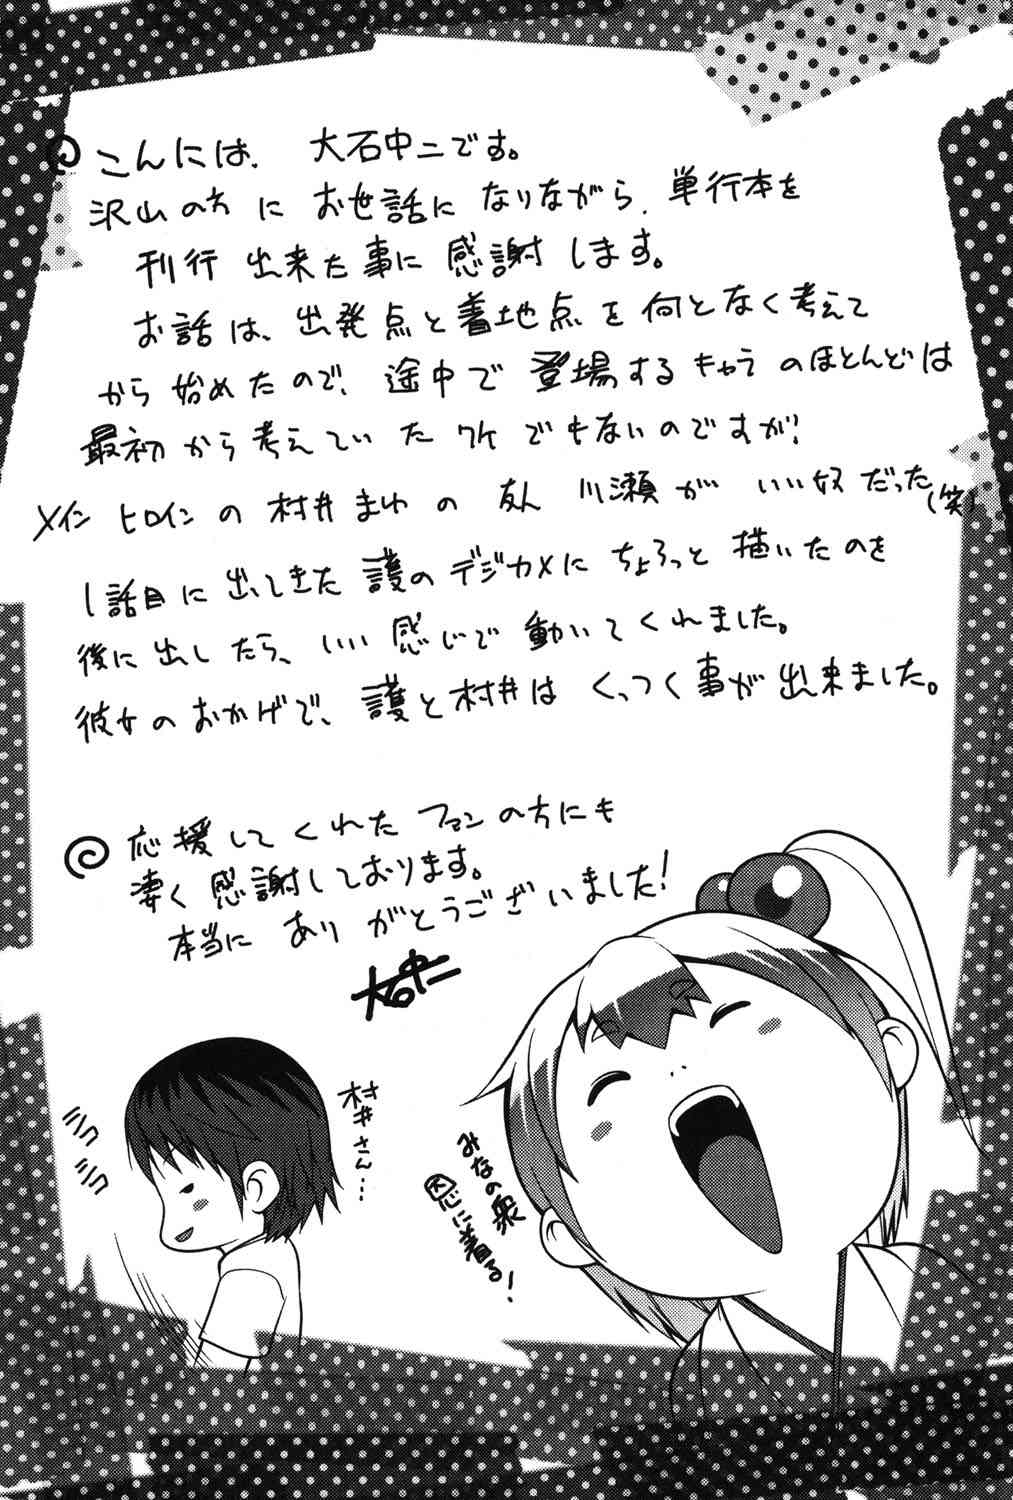 こんには、大石中二です。
沢山の方にお世話になりながら、単行本を
刊行出来た事に感謝します。
お話は、出発点と着地点を何となく考えて
から始めたので、途中で登場するキャラのほとんどは
最初から考えていたワケでもないのですが!
メインヒロインの村井まゆの友人 川瀬がいい奴だった(笑)
1話目に出てきた護のデジカメにちょろっと描いたのを
後に出したら、いい感じで動いてくれました。
彼女のおかげで、護と村井はくっつく事が出来ました。
応援してくれたファンの方にも
凄く感謝しております。
本当にありがとうございました!
大石中二
村井さん…
ミク
ミク
みなの衆
恩に着る!